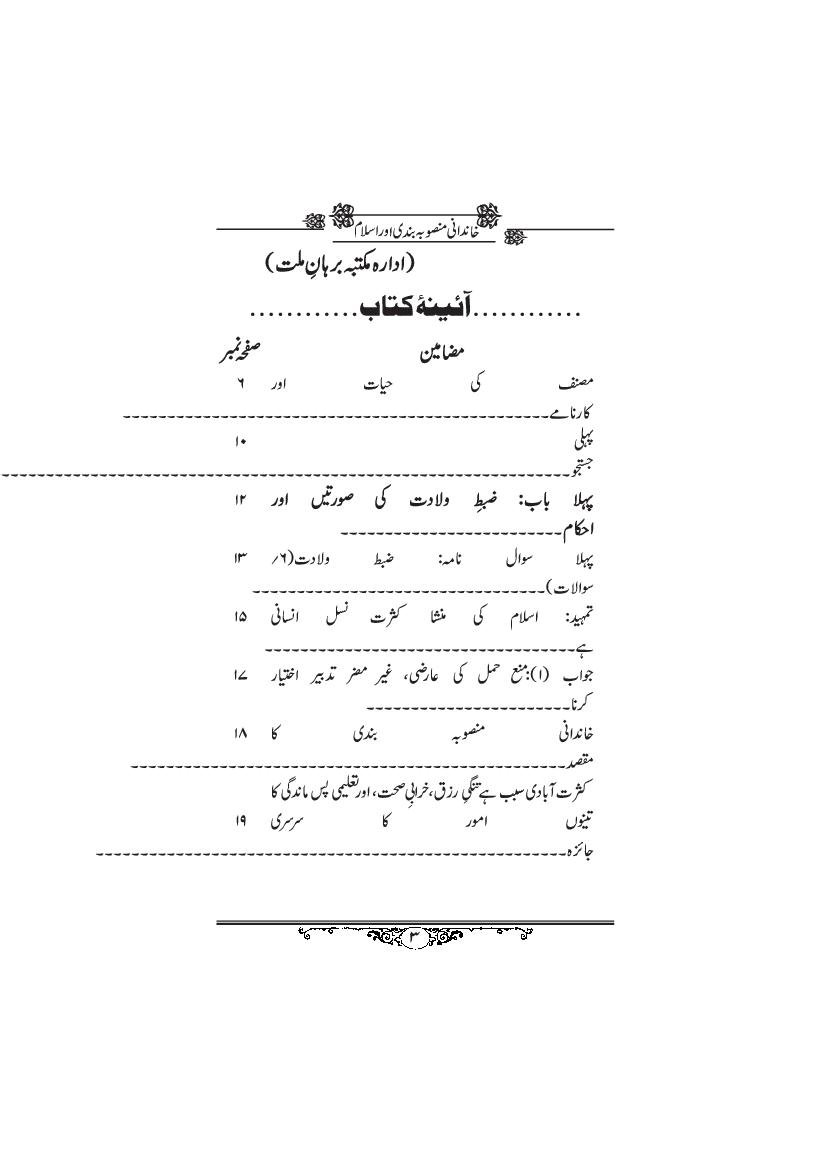 خاندانی منصوبہ بندی اور اسلام
(ادارہ مکتبہ برہانِ ملت)
............آئینۂ کتاب............
مضامین صفحہ نمبر
مصنف کی حیات اور ۶
کارنامے------------------------------------------------
پہلی ۱۰
جستجو----------------------------------------------------------------
پہلا باب: ضبطِ ولادت کی صورتیں اور ۱۲
احکام-------------------------
پہلا سوال نامہ: ضبط ولادت(۶؍ ۱۳
سوالات)---------------------------------
تمہید: اسلام کی منشا کثرت نسل انسانی ۱۵
ہے-----------------------------------
جواب (۱):منع حمل کی عارضی، غیر مضر تدبیر اختیار ۱۷
کرنا-----------------------
خاندانی منصوبہ بندی کا ۱۸
مقصد-------------------------------------------------
کثرت آبادی سبب ہے تنگیِ رزق، خرابیِ صحت، اور تعلیمی پس ماندگی کا
تینوں امور کا سرسری ۱۹
جائزہ-----------------------------------------------------
۳